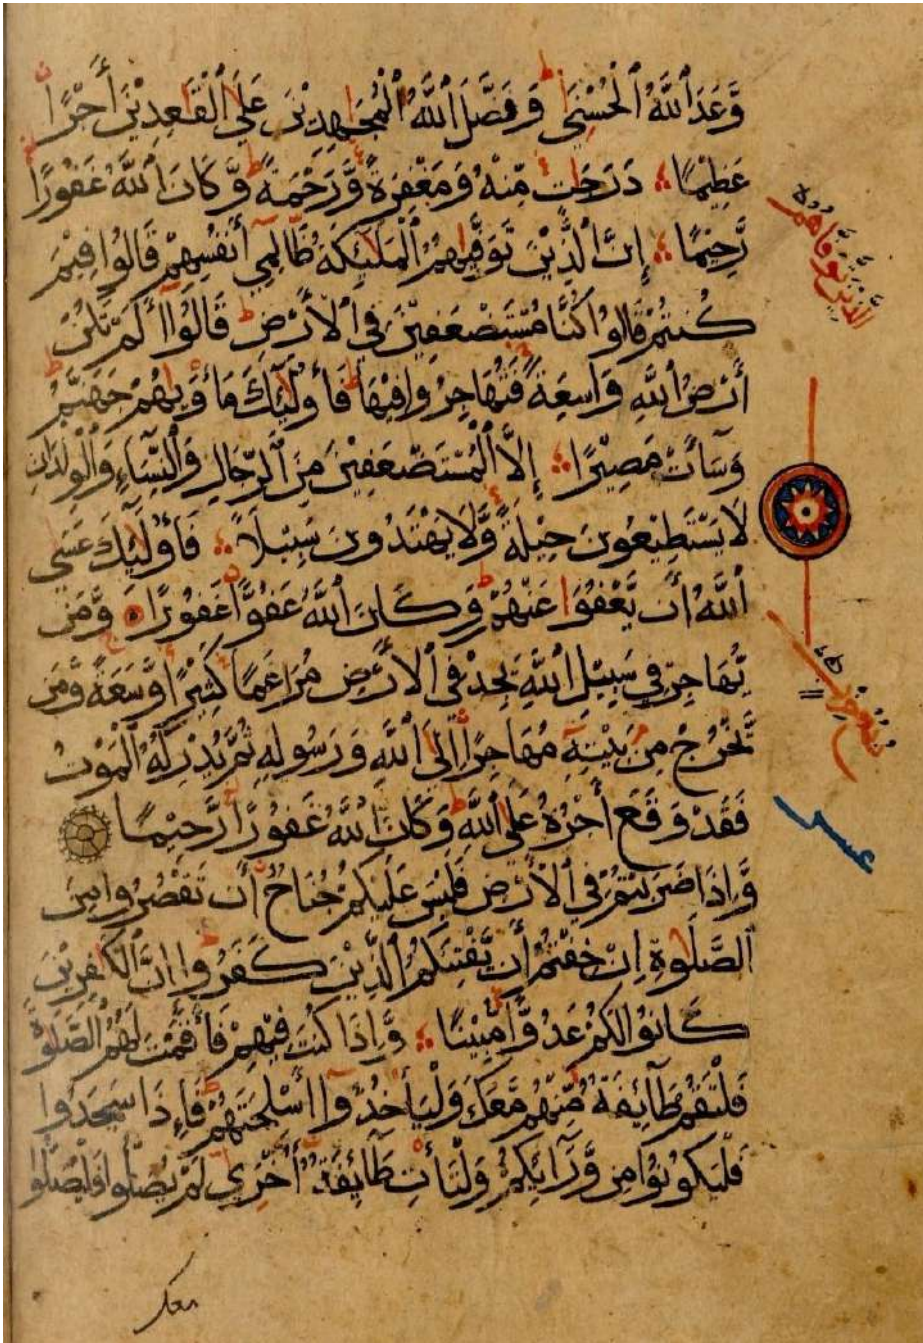 وَّعَدَ ٱللَّهُ ٱلْحُسْنٰى وَفَضَّلَ ٱللَّهُ ٱلْمُجٰهِدِيْنَ عَلَى ٱلْقٰعِدِيْنَ أَجْرًا
عَظِيْمًا دَرَجٰتٍ مِّنْهُ وَمَغْفِرَةً وَّرَحْمَةً وَّكَانَ ٱللَّهُ غَفُوْرًا
رَّحِيْمًا إِنَّ ٱلَّذِيْنَ تَوَفّٰىهُمُ ٱلْمَلٰٓئِكَةُ ظَالِمِيْٓ أَنْفُسِهِمْ قَالُوْا فِيْمَ
كُنْتُمْ قَالُوْا كُنَّا مُسْتَضْعَفِيْنَ فِي ٱلْأَرْضِ قَالُوْٓا أَلَمْ تَكُنْ
أَرْضُ ٱللَّهِ وَاسِعَةً فَتُهَاجِرُوْا فِيْهَا فَأُولٰٓئِكَ مَأْوٰىهُمْ جَهَنَّمُ
وَسَآءَتْ مَصِيْرًا إِلَّا ٱلْمُسْتَضْعَفِيْنَ مِنَ ٱلرِّجَالِ وَٱلنِّسَآءِ وَٱلْوِلْدَانِ
لَا يَسْتَطِيْعُوْنَ حِيْلَةً وَّلَا يَهْتَدُوْنَ سَبِيْلًا فَأُولٰٓئِكَ عَسَى
ٱللَّهُ أَنْ يَّعْفُوَا عَنْهُمْ وَكَانَ ٱللَّهُ عَفُوًّا غَفُوْرًا وَّمَنْ
يُّهَاجِرْ فِيْ سَبِيْلِ ٱللَّهِ يَجِدْ فِي ٱلْأَرْضِ مُرَاغَمًا كَثِيْرًا وَّسَعَةً وَّمَنْ
يَّخْرُجْ مِنْ بَيْتِهٖ مُهَاجِرًا إِلَى ٱللَّهِ وَرَسُوْلِهٖ ثُمَّ يُدْرِكْهُ ٱلْمَوْتُ
فَقَدْ وَقَعَ أَجْرُهُ عَلَى ٱللَّهِ وَكَانَ ٱللَّهُ غَفُوْرًا رَّحِيْمًا
وَّإِذَا ضَرَبْتُمْ فِي ٱلْأَرْضِ فَلَيْسَ عَلَيْكُمْ جُنَاحٌ أَنْ تَقْصُرُوْا مِنَ
ٱلصَّلٰوةِ إِنْ خِفْتُمْ أَنْ يَّفْتِنَكُمُ ٱلَّذِيْنَ كَفَرُوْا إِنَّ ٱلْكٰفِرِيْنَ
كَانُوْا لَكُمْ عَدُوًّا مُّبِيْنًا وَّإِذَا كُنْتَ فِيْهِمْ فَأَقَمْتَ لَهُمُ ٱلصَّلٰوةَ
فَلْتَقُمْ طَآئِفَةٌ مِّنْهُمْ مَّعَكَ وَلْيَأْخُذُوْٓا أَسْلِحَتَهُمْ فَإِذَا سَجَدُوْا
فَلْيَكُوْنُوْا مِنْ وَّرَآئِكُمْ وَلْتَأْتِ طَآئِفَةٌ أُخْرٰى لَمْ يُصَلُّوْا فَلْيُصَلُّوْا
معك
ٱلَّذِيْنَ تَّوَفَّاهُمُ
عشر